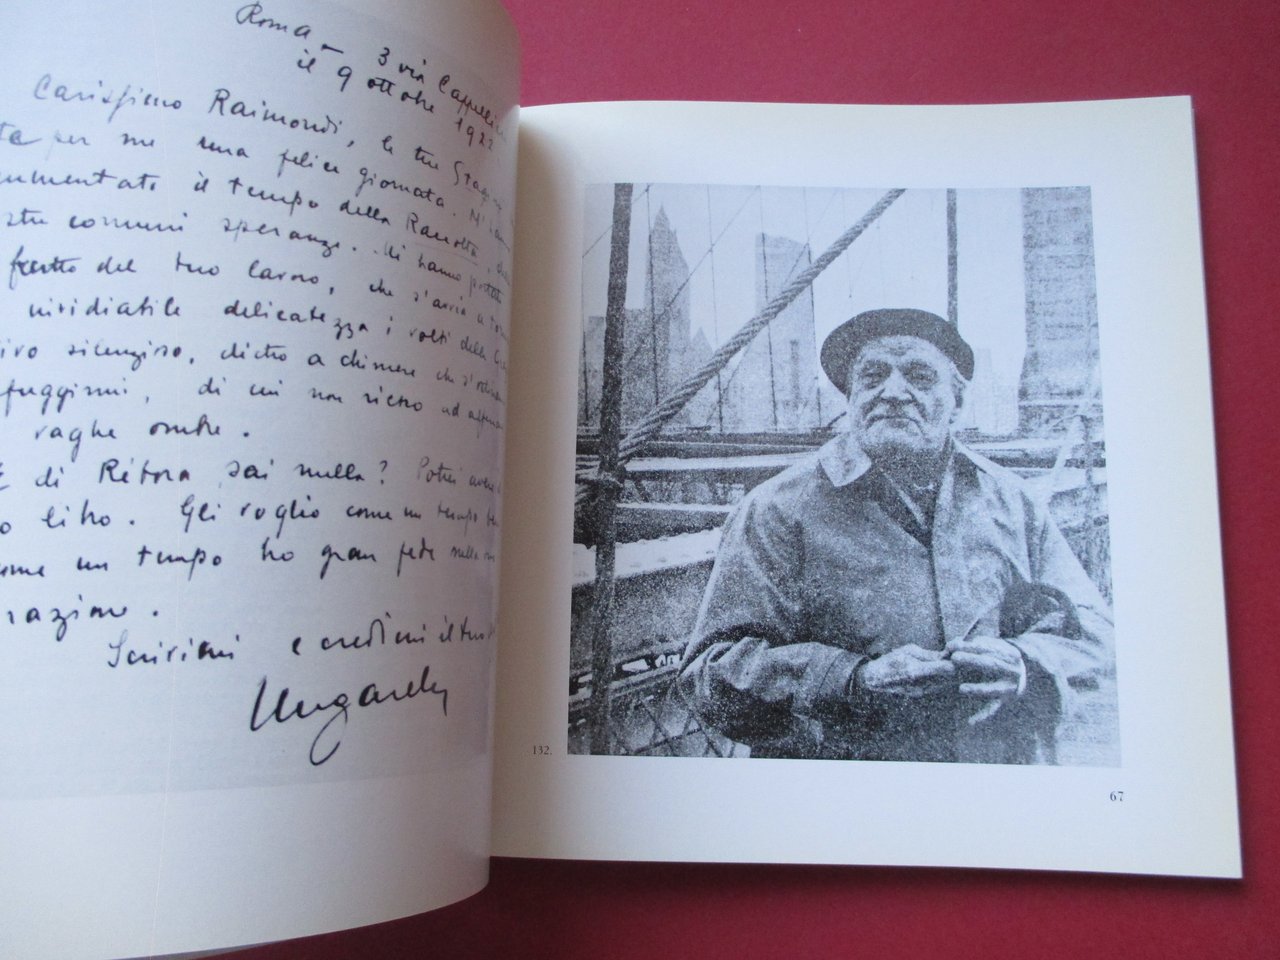 Roma - 3 via Cappellini
il 9 ottobre 1922.
Carissimo Raimondi, le tue
per me una felice giornata. M'
umentate il tempo della Raccolta,
stre comuni speranze. Mi hanno portato
frutto del tuo lavoro, che s'avvia a
invidiabile delicatezza i volti della
ivo silenzioso, dietro a chimere che
fuggirmi, di cui non riesco ad
vaghe ombre.
E di Rèbora sai nulla? Potrei avere
o libro. Gli voglio come un tempo
ome un tempo ho gran fede nella
razione.
Scrivimi e credimi il tuo
Ungaretti
132.
67